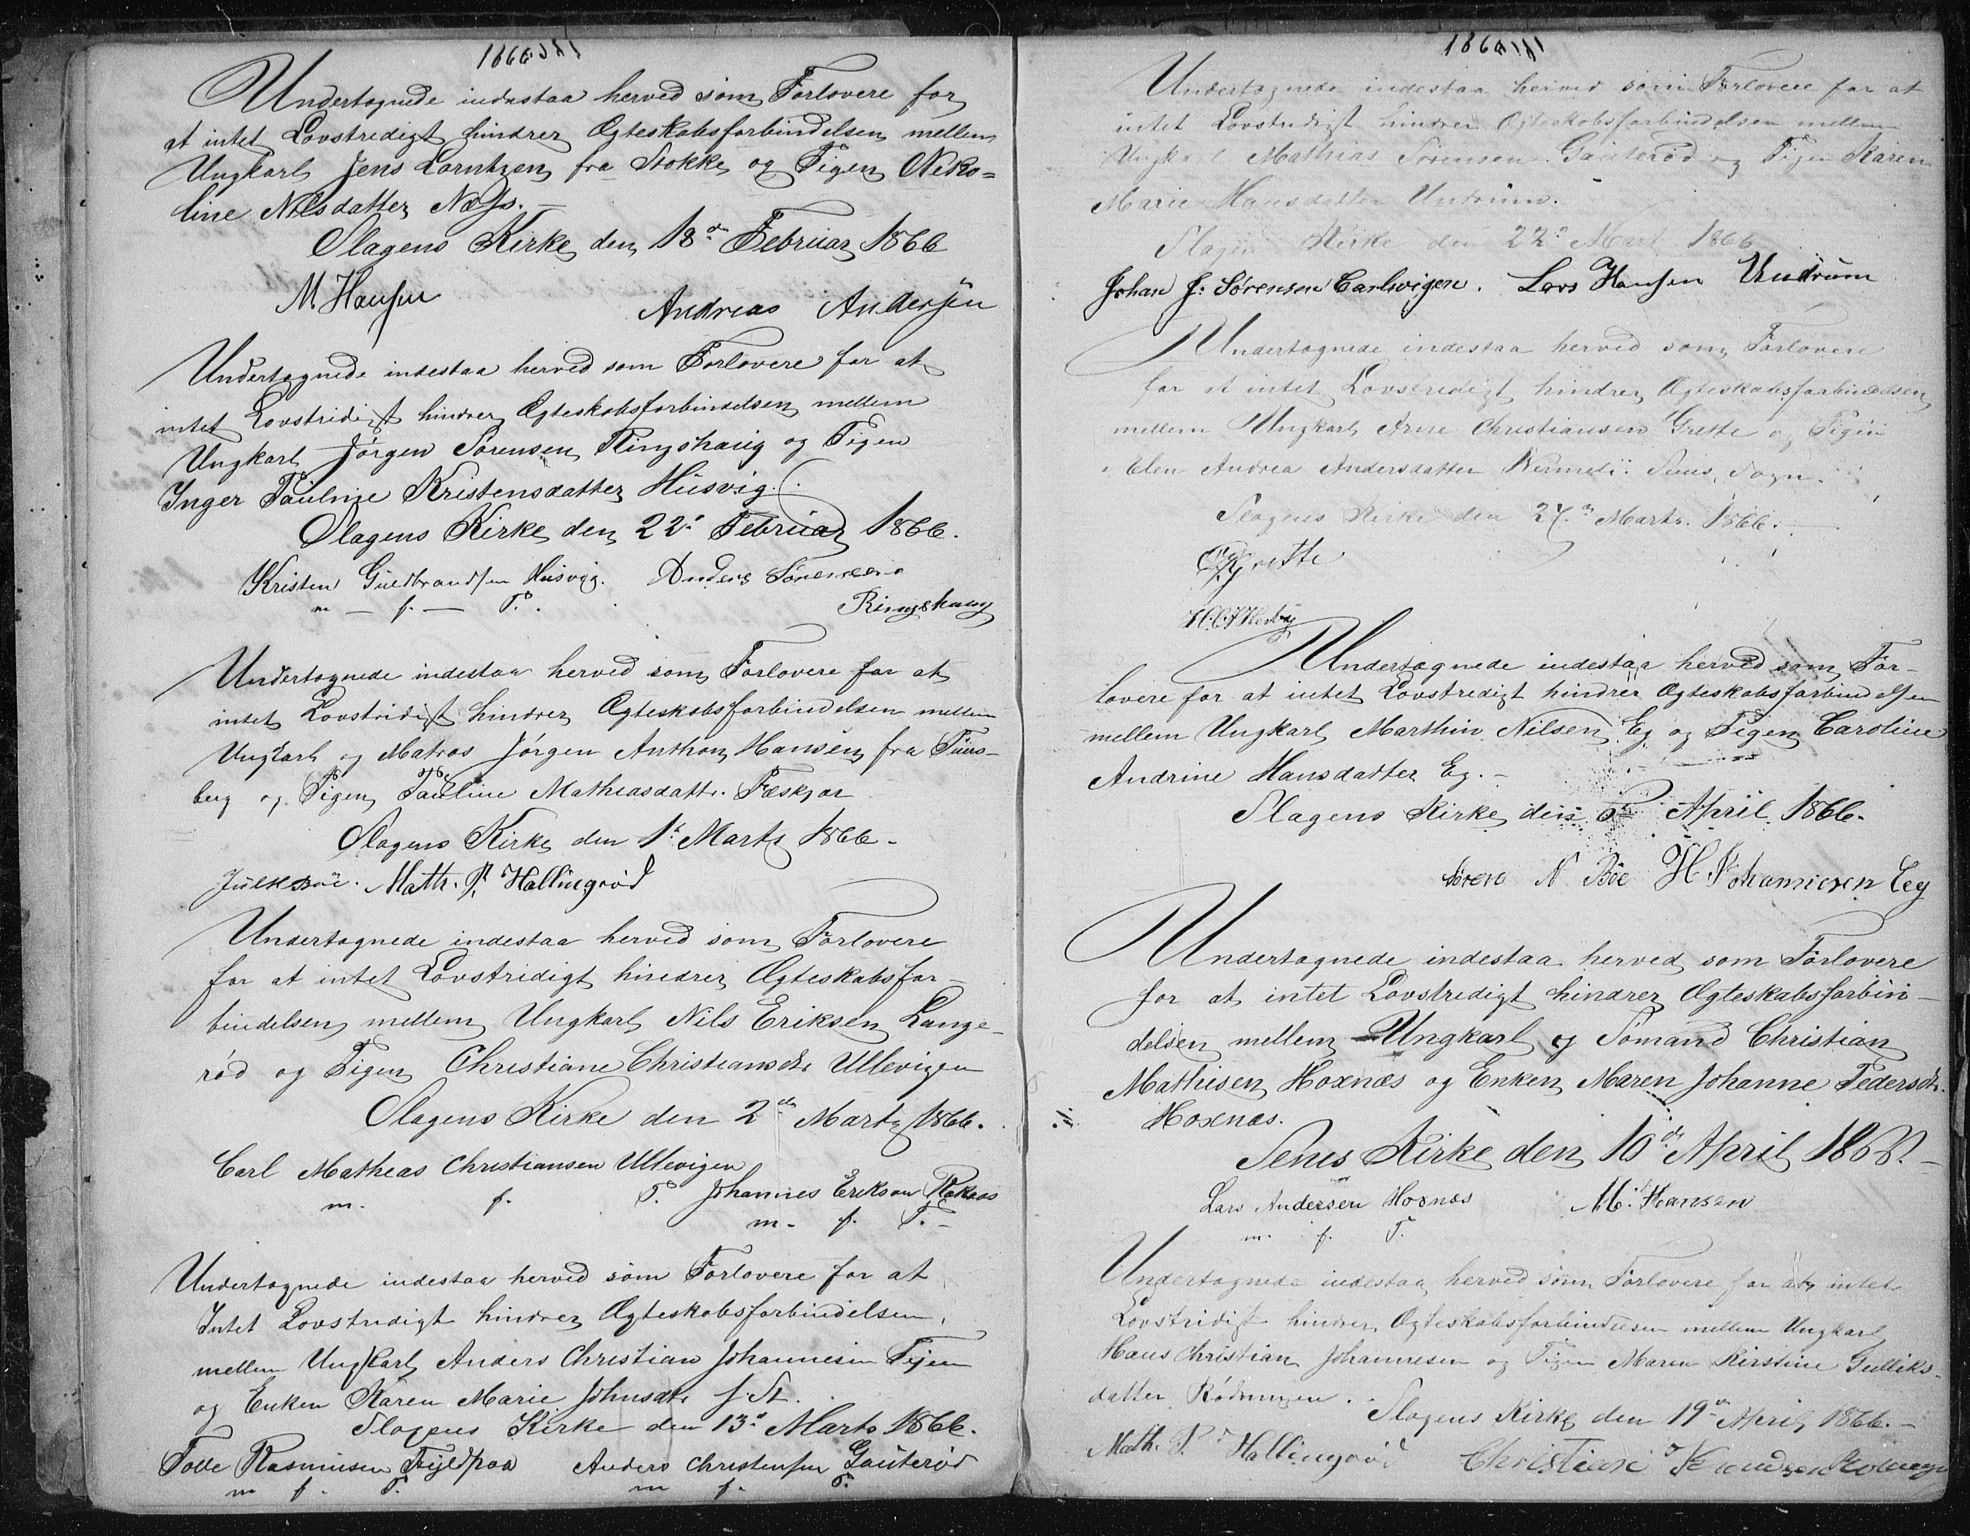 1866
Undertegnede indestaa herved som Forlovere for
at intet Lovstridigt hindrer Ægteskabsforbindelsen mellem
Ungkarl Jens Lorntzen fra Stokke og Pigen Neko=
line Nilsdatter Næss.
Slagens Kirke den 18de Februar 1866
M Hansen Andreas Andersen
Undertegnede indestaa herved som Forlovere for at
intet Lovstridigt hindrer Ægteskabsforbindelsen mellem
Ungkarl Jørgen Sørensen Ringshaug og Pigen
Inger Pauline Kristensdatter Husvig.
Slagens Kirke den 22d Februar 1866.
Kristen Guldbrandsen Husvig. Anders Sørensen
m - f. - P. Ringshaug
Undertegnede indestaa herved som Forlovere for at
intet Lovstridigt hindrer Ægteskabsforbindelsen mellem
Ungkarl og Matros Jørgen Anthon Hansen fra Tøns-
berg og Pigen Pauline Mathiasdattr.
Slagens Kirke den 1st Marts 1866.
Math. P. Hallingrød
Undertegnede indestaa herved som Forlovere
for at intet Lovstridigt hindrer Ægteskabsfor-
bindelsen mellem Ungkarl Nils Eriksen Lange-
rød og Pigen Christiane Christiansdtr Ullevigen
Slagens Kirke den 2den Marts 1866.
Carl Mathias Christiansen Ullevigen
m. f. P. Johannes Erikson
m. f. P.
Undertegnede indestaa herved som Forlovere for at
Intet Lovstridigt hindrer Ægteskabsforbindelsen
mellem Ungkarl Anders Christian Johannesen
og Enken Karen Marie Johnsdtr
Slagens Kirke den 13d Marts 1866.
Rasmusen Anders Christensen Gauterød
m f. P. m f. P.
1866
Undertegnede indestaa herved som Forlovere for at
intet Lovstridigt hindrer Ægteskabsforbindelsen mellem
Ungkarl Mathias Sørensen Gauterød og Pigen Karen
Marie Hansdatter Undrum.
Slagens Kirke den 22d Mart 1866
Johan J. Sørensen Carlsvigen. Lars Hansen Undrum
Undertegnede indestaa herved som Forlovere
for at intet Lovstridigt hindrer Ægteskabsforbindelsen
mellem Ungkarl Arne Christiansen Grette og Pigen
Elen Andrea Andersdatter Sems Sogn.
Slagens Kirke den 27de Marts 1866.
Grette
Undertegnede indestaa herved som For-
lovere for at intet Lovstridigt hindrer Ægteskabsforbindelsen
mellem Ungkarl Marthin Nilsen Eg og Pigen Caroline
Andrine Hansdatter Eg.
Slagens Kirke den April 1866.
Søren N Bøe H Johannesen Eeg
Undertegnede indestaa herved som Forlovere
for at intet Lovstridigt hindrer Ægteskabsforbin-
delsen mellem Ungkarl og Sømand Christian
Mathisen Hoxnæs og Enken Maren Johanne Pedersdtr.
Hoxnæs.
Sems Kirke den 10de April 1866.
Lars Andersen Hoxnæs M. Hansen
m. f. P.
Undertegnede indestaa herved som Forlovere for at intet
Lovstridigt hindrer Ægteskabsforbindelsen mellem Ungkarl
Hans Christian Johannesen og Pigen Maren Kirstine Gulliks-
datter Rødningen.
Slagens Kirke den 19de April 1866.
Math. P. Hallingrød Christian Knudsen